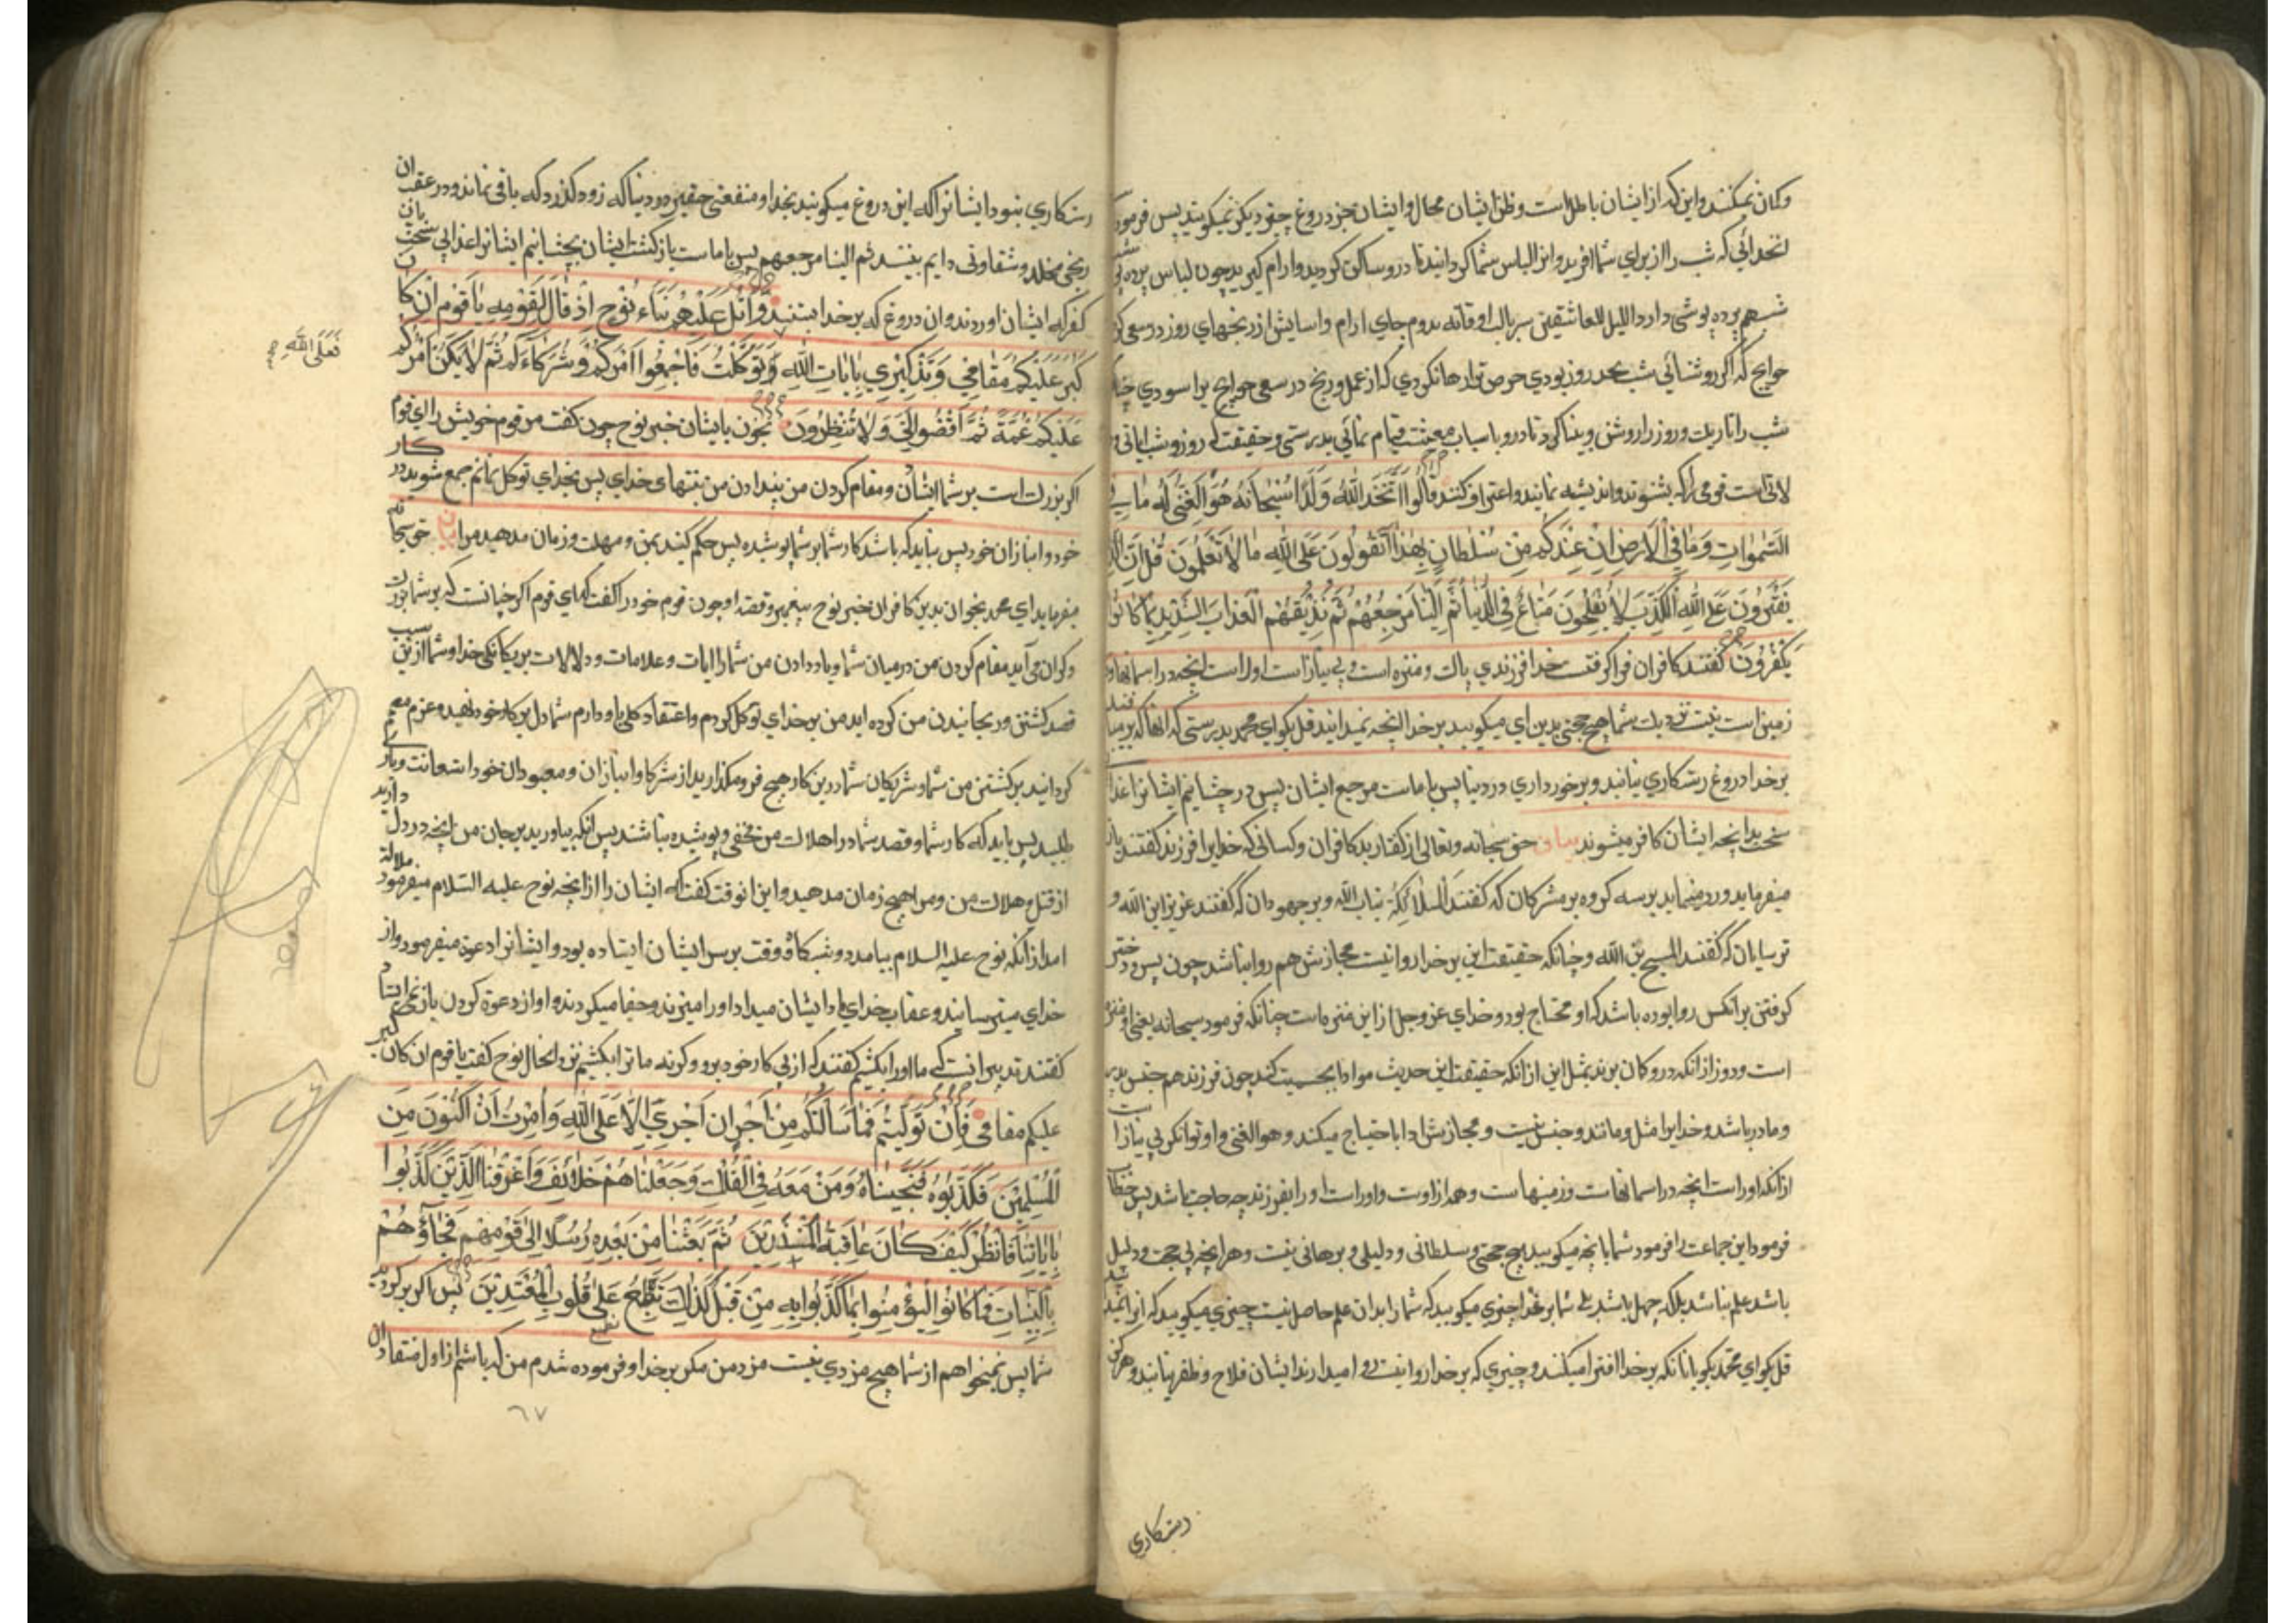 وکان نمیکنند واین که از ایشان باطل است وظن ایشان محال وایشان جز دروغ چیزی دیگر نمیکویند پس فرمود
شب را از برای شما افرید وانرا لباس شما کردانید تا درو ساکن کردید وارام کیرید چون لباس پرده
شب هم پرده پوشی دارد اللیل للعاشقین ستر یالیت اوقاته تدوم جای ارام واسایش از رنجهای روز در سعی
حوایج که اکر روشنائی شب بحد روز بودی حرص ترا رها نکردی که از عمل ورنج در سعی حوایج بر اسودی
شب را تاریک وروز را روشن وبینا کرد تا درو باسباب معیشت قیام نمائی بدرستی وحقیقت که روز وشب
قومی را که بشنوند واندیشه نمایند واعتراف کنند قالوا اتخذ الله ولدا سبحانه هو الغنی له ما فی
السموات وما فی الارض ان عندکم من سلطان بهذا اتقولون علی الله ما لا تعلمون قل ان الذین
یفترون علی الله الکذب لا یفلحون متاع فی الدنیا ثم الینا مرجعهم ثم نذیقهم العذاب الشدید بما کانوا
یکفرون کفتند کافران فرا کرفت خدا فرزندی پاک ومنزه است وبی نیاز است اوراست انچه در اسمانها و
زمین است نیست نزدیک شما هیچ حجتی بدین ای میکویید بر خدا انچه نمیدانید قل بکو ای محمد بدرستی که انها که
بر خدا دروغ رستکاری نیابند وبرخورداری در دنیا پس با ماست مرجع ایشان پس در چشانیم ایشانرا
سخت بدانچه ایشان کافر میشوند بیان حق سبحانه وتعالی از کفتار بد کافران وکسانی که خدایرا فرزند کفتند
میفرماید ورد مینماید بر سه کروه بر مشرکان که کفتند الملائکة بنات الله وبر جهودان که کفتند عزیر ابن الله و
ترسایان که کفتند المسیح بن الله وچنانکه حقیقت این بر خدا روا نیست مجازش هم روا نباشد چون پسر ودختر
کرفتن بر انکس روا بوده باشد که او محتاج بود وخدای عز وجل از این منزه است چنانکه فرمود سبحانه یعنی او منزه
است ودور از انکه در وکان برند بمثل این از انکه حقیقت این حدیث
ومادر باشد وخدایرا مثل ومانند وجنس نیست ومجازش ادا باحتیاج میکند وهو الغنی واو توانکر بی نیاز است
از انکه اوراست انچه در اسمانهاست وزمینهاست وهمه از اوست واوراست اورا بفرزند چه حاجت باشد پس خطاب
فرمود این جماعت را فرمود شما بانچه میکویید هیچ حجتی وسلطانی ودلیلی وبرهانی نیست وهر انچه بی حجت ودلیل
باشد علم نباشد بلکه جهل باشد بر خدا چیزی میکویید که شما را بدان علم حاصل نیست چیزی میکویید که انرا
قل بکو ای محمد بکو بانانکه بر خدا افترا میکنند وچیزی که بر خدا روا نیست امیدارند ایشان فلاح وظفر نیابند وهرکز
رستکاری
رستکاری نبود ایشانرا که این دروغ میکویند بخدا ومنفعتی حقیر در دنیا که زود کذرد که باقی نماند ودر عقب ان
رنجی مخلد وشقاوتی دایم بینند ثم الینا مرجعهم پس با ماست بازکشت ایشان بچشانیم ایشانرا عذابی سخت بان
کفر که ایشان اوردند وان دروغ که بر خدا بستند واتل علیهم نباء نوح اذ قال لقومه یا قوم ان کان
کبر علیکم مقامی وتذکیری بایات الله وتوکلت فاجمعوا امرکم وشرکاءکم ثم لا یکن امرکم
فعلی الله صح
علیکم غمة ثم اقضوا الی ولا تنظرون بخوان بایشان خبر نوح چون کفت مر قوم خویش را ای قوم
اکر بزرک است بر شما ایشان ومقام کردن من پند دادن من خدای پس بخدای توکل جمع شوید در کار
خود وانبازان خود پس نباید که باشد کار شما بر شما پوشیده پس حکم کنید بمن ومهلت وزمان مدهید مرا حق سبحانه
میفرماید ای محمد بخوان بدین کافران خبر نوح پیغمبر وقصه او چون قوم خود را کفت که ای قوم اکر چنانست که بر شما بزرک
وکران می آید مقام کردن من در میان شما ویاد دادن من شما را ایات وعلامات ودلالات بر یکانکی خدا وشما ازین سبب
قصد کشتن ورنجانیدن من کرده اید من بر خدای توکل کردم واعتقاد کلی باو دارم شما دل بر کار خود نهید وعزم
کردانید بر کشتن من شما وشریکان شما درین کار هیچ فرو مکذارید از شرکا وانبازان ومعبودان خود استعانت ویاری
طلبید پس باید که کار شما وقصد شما در اهلاک من مخفی وپوشیده نباشد پس انکه بیاورید بر جان من انچه در دل دارید
از قتل وهلاک من ومرا هیچ زمان مدهید واین انوقت کفت که ایشان را از انچه نوح علیه السلام میفرمود ملالة
امد از انکه نوح علیه السلام بیامد دو شبکاه وقت بر سر ایشان ایستاده بود وایشانرا دعوة میفرمود واز
خدای میترسانید وعقاب خدای یاد ایشان میداد اورا میزدند وجفا میکردند واو از دعوة کردن باز نمی ایستاد
کفتند تدبیر انست که ما اورا بکشیم کفتند که از پی کار خود برو وکرنه ما ترا بکشیم در انحال نوح کفت یا قوم ان کان کبر
علیکم مقامی فان تولیتم فما سالتکم من اجر ان اجری الا علی الله وامرت ان اکون من
المسلمین فکذبوه فنجیناه ومن معه فی الفلک وجعلناهم خلائف واغرقنا الذین کذبوا
بایاتنا فانظر کیف کان عاقبة المنذرین ثم بعثنا من بعده رسلا الی قومهم فجاؤهم
بالبینات فما کانوا لیؤمنوا بما کذبوا به من قبل کذلک نطبع علی قلوب المعتدین پس اکر برکردید
شما پس نمیخواهم از شما هیچ مزدی نیست مزد من مکر بر خدا وفرموده شدم من که باشم از اول
٦٧